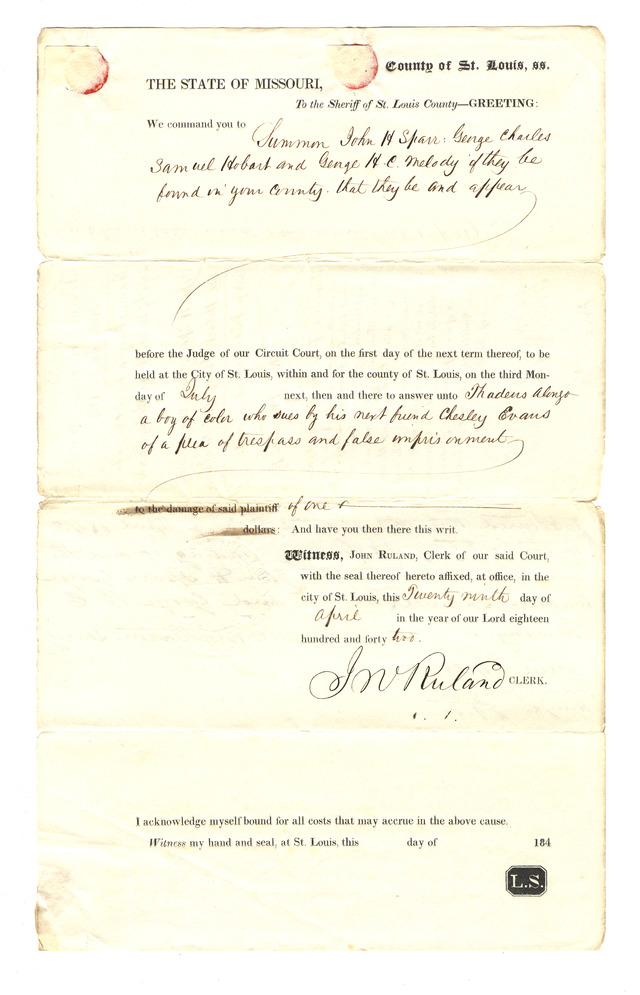 County of St. Louis, ss.
THE STATE OF MISSOURI,
To the Sheriff of St. Louis County—GREETING:
We command you to Summon John H Sparr: George Charles
Samuel Hobart and George H. C. Melody if they be
found in your county. that they be and appear
before the Judge of our Circuit Court, on the first day of the next term thereof, to be
held at the City of St. Louis, within and for the county of St. Louis, on the third Mon-
day of July next, then and there to answer unto Thadeus Alonzo
a boy of color who sues by his next friend Chesley Evans
of a plea of trespass and false imprisonment
to the damage of said plaintiff of one &
dollars: And have you then there this writ.
Witness, JOHN RULAND, Clerk of our said Court,
with the seal thereof hereto affixed, at office, in the
city of St. Louis, this Twenty ninth day of
April in the year of our Lord eighteen
hundred and forty two.
Ruland CLERK.
I acknowledge myself bound for all costs that may accrue in the above cause.
Witness my hand and seal, at St. Louis, this day of 184
L.S.